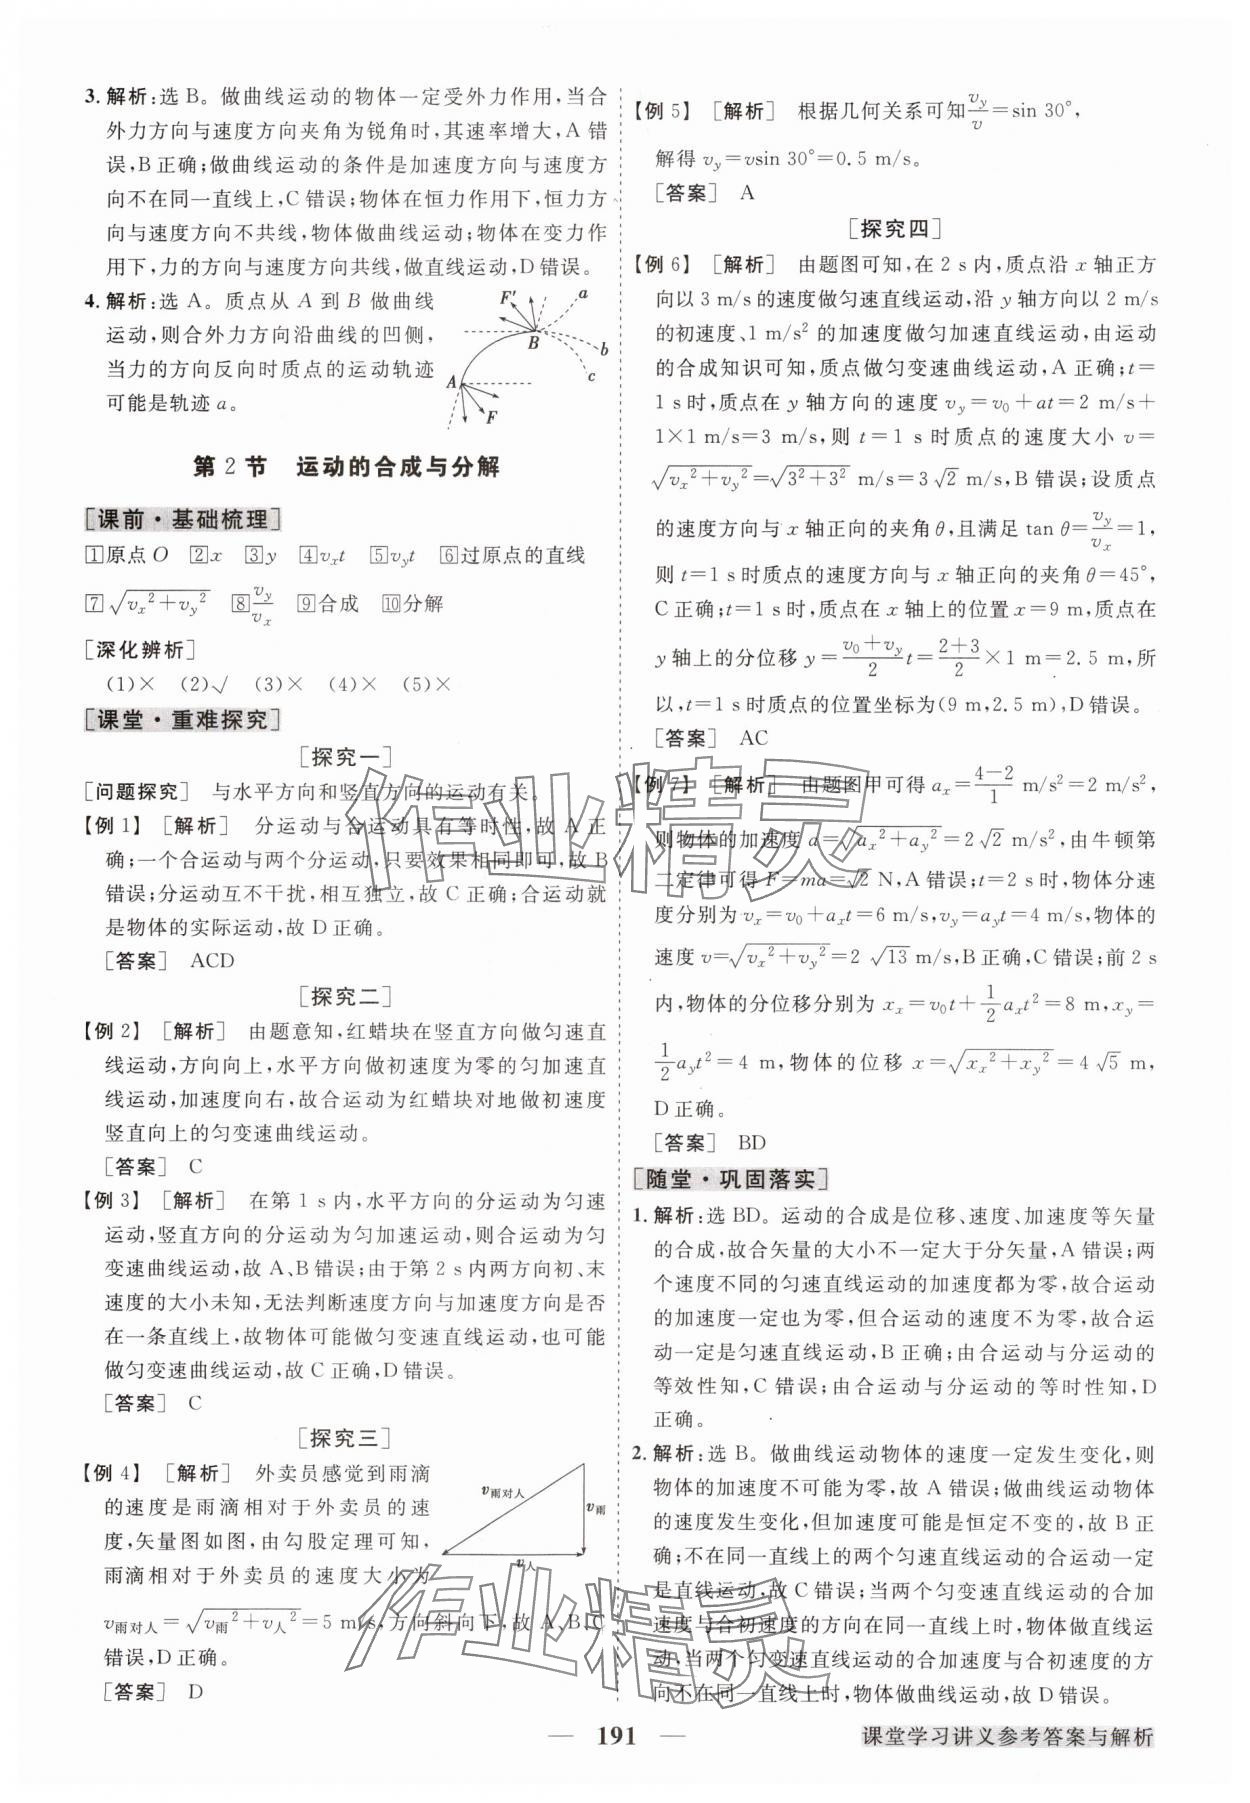 3. 解析:选 B。做曲线运动的物体一定受外力作用,当合
外力方向与速度方向夹角为锐角时,其速率增大,A 错
误,B 正确;做曲线运动的条件是加速度方向与速度方
向不在同一直线上,C 错误;物体在恒力作用下,恒力方
向与速度方向不共线,物体做曲线运动;物体在变力作
用下,力的方向与速度方向共线,做直线运动,D 错误。
4. 解析:选 A。质点从 A 到 B 做曲线
运动,则合外力方向沿曲线的凹侧,
当力的方向反向时质点的运动轨迹
可能是轨迹 a。
F′ a
B b
c
A
F
第 2 节 运动的合成与分解
[课前·基础梳理]
①原点 O ②x ③y ④vₓt ⑤v_y t ⑥过原点的直线
⑦√(vₓ²+v_y²) ⑧v_y/vₓ ⑨合成 ⑩分解
[深化辨析]
(1)× (2)√ (3)× (4)× (5)×
[课堂·重难探究]
[探究一]
[问题探究] 与水平方向和竖直方向的运动有关。
【例 1】 [解析] 分运动与合运动具有等时性,故 A 正
确;一个合运动与两个分运动,只要效果相同即可,故 B
错误;分运动互不干扰,相互独立,故 C 正确;合运动就
是物体的实际运动,故 D 正确。
[答案] ACD
[探究二]
【例 2】 [解析] 由题意知,红蜡块在竖直方向做匀速直
线运动,方向向上,水平方向做初速度为零的匀加速直
线运动,加速度向右,故合运动为红蜡块对地做初速度
竖直向上的匀变速曲线运动。
[答案] C
【例 3】 [解析] 在第 1 s 内,水平方向的分运动为匀速
运动,竖直方向的分运动为匀加速运动,则合运动为匀
变速曲线运动,故 A、B 错误;由于第 2 s 内两方向初、末
速度的大小未知,无法判断速度方向与加速度方向是否
在一条直线上,故物体可能做匀变速直线运动,也可能
做匀变速曲线运动,故 C 正确,D 错误。
[答案] C
[探究三]
【例 4】 [解析] 外卖员感觉到雨滴
的速度是雨滴相对于外卖员的速
度,矢量图如图,由勾股定理可知,
雨滴相对于外卖员的速度大小为
v雨对人
v雨
v人
v雨对人=√(v雨²+v人²)=5 m/s,方向斜向下,故 A、B、C
错误,D 正确。
[答案] D
【例 5】 [解析] 根据几何关系可知v_y/v=sin 30°,
解得 v_y=vsin 30°=0.5 m/s。
[答案] A
[探究四]
【例 6】 [解析] 由题图可知,在 2 s 内,质点沿 x 轴正方
向以 3 m/s 的速度做匀速直线运动,沿 y 轴方向以 2 m/s
的初速度、1 m/s² 的加速度做匀加速直线运动,由运动
的合成知识可知,质点做匀变速曲线运动,A 正确;t=
1 s 时,质点在 y 轴方向的速度 v_y=v₀+at=2 m/s+
1×1 m/s=3 m/s,则 t=1 s 时质点的速度大小 v=
√(vₓ²+v_y²)=√(3²+3²) m/s=3√2 m/s,B 错误;设质点
的速度方向与 x 轴正向的夹角 θ,且满足 tan θ=v_y/vₓ=1,
则 t=1 s 时质点的速度方向与 x 轴正向的夹角 θ=45°,
C 正确;t=1 s 时,质点在 x 轴上的位置 x=9 m,质点在
y 轴上的分位移 y=(v₀+v_y)/2 t=(2+3)/2×1 m=2.5 m,所
以,t=1 s 时质点的位置坐标为(9 m,2.5 m),D 错误。
[答案] AC
【例 7】 [解析] 由题图甲可得 aₓ=(4-2)/1 m/s²=2 m/s²,
则物体的加速度 a=√(aₓ²+a_y²)=2√2 m/s²,由牛顿第
二定律可得 F=ma=√2 N,A 错误;t=2 s 时,物体分速
度分别为 vₓ=v₀+aₓt=6 m/s,v_y=a_y t=4 m/s,物体的
速度 v=√(vₓ²+v_y²)=2√13 m/s,B 正确,C 错误;前 2 s
内,物体的分位移分别为 xₓ=v₀t+1/2 aₓt²=8 m,x_y=
1/2 a_y t²=4 m,物体的位移 x=√(xₓ²+x_y²)=4√5 m,
D 正确。
[答案] BD
[随堂·巩固落实]
1. 解析:选 BD。运动的合成是位移、速度、加速度等矢量
的合成,故合矢量的大小不一定大于分矢量,A 错误;两
个速度不同的匀速直线运动的加速度都为零,故合运动
的加速度一定也为零,但合运动的速度不为零,故合运
动一定是匀速直线运动,B 正确;由合运动与分运动的
等效性知,C 错误;由合运动与分运动的等时性知,D
正确。
2. 解析:选 B。做曲线运动物体的速度一定发生变化,则
物体的加速度不可能为零,故 A 错误;做曲线运动物体
的速度发生变化,但加速度可能是恒定不变的,故 B 正
确;不在同一直线上的两个匀速直线运动的合运动一定
是直线运动,故 C 错误;当两个匀变速直线运动的合加
速度与合初速度的方向在同一直线上时,物体做直线运
动,当两个匀变速直线运动的合加速度与合初速度的方
向不在同一直线上时,物体做曲线运动,故 D 错误。
— 191 —
课堂学习讲义参考答案与解析
作业精灵
作业精灵